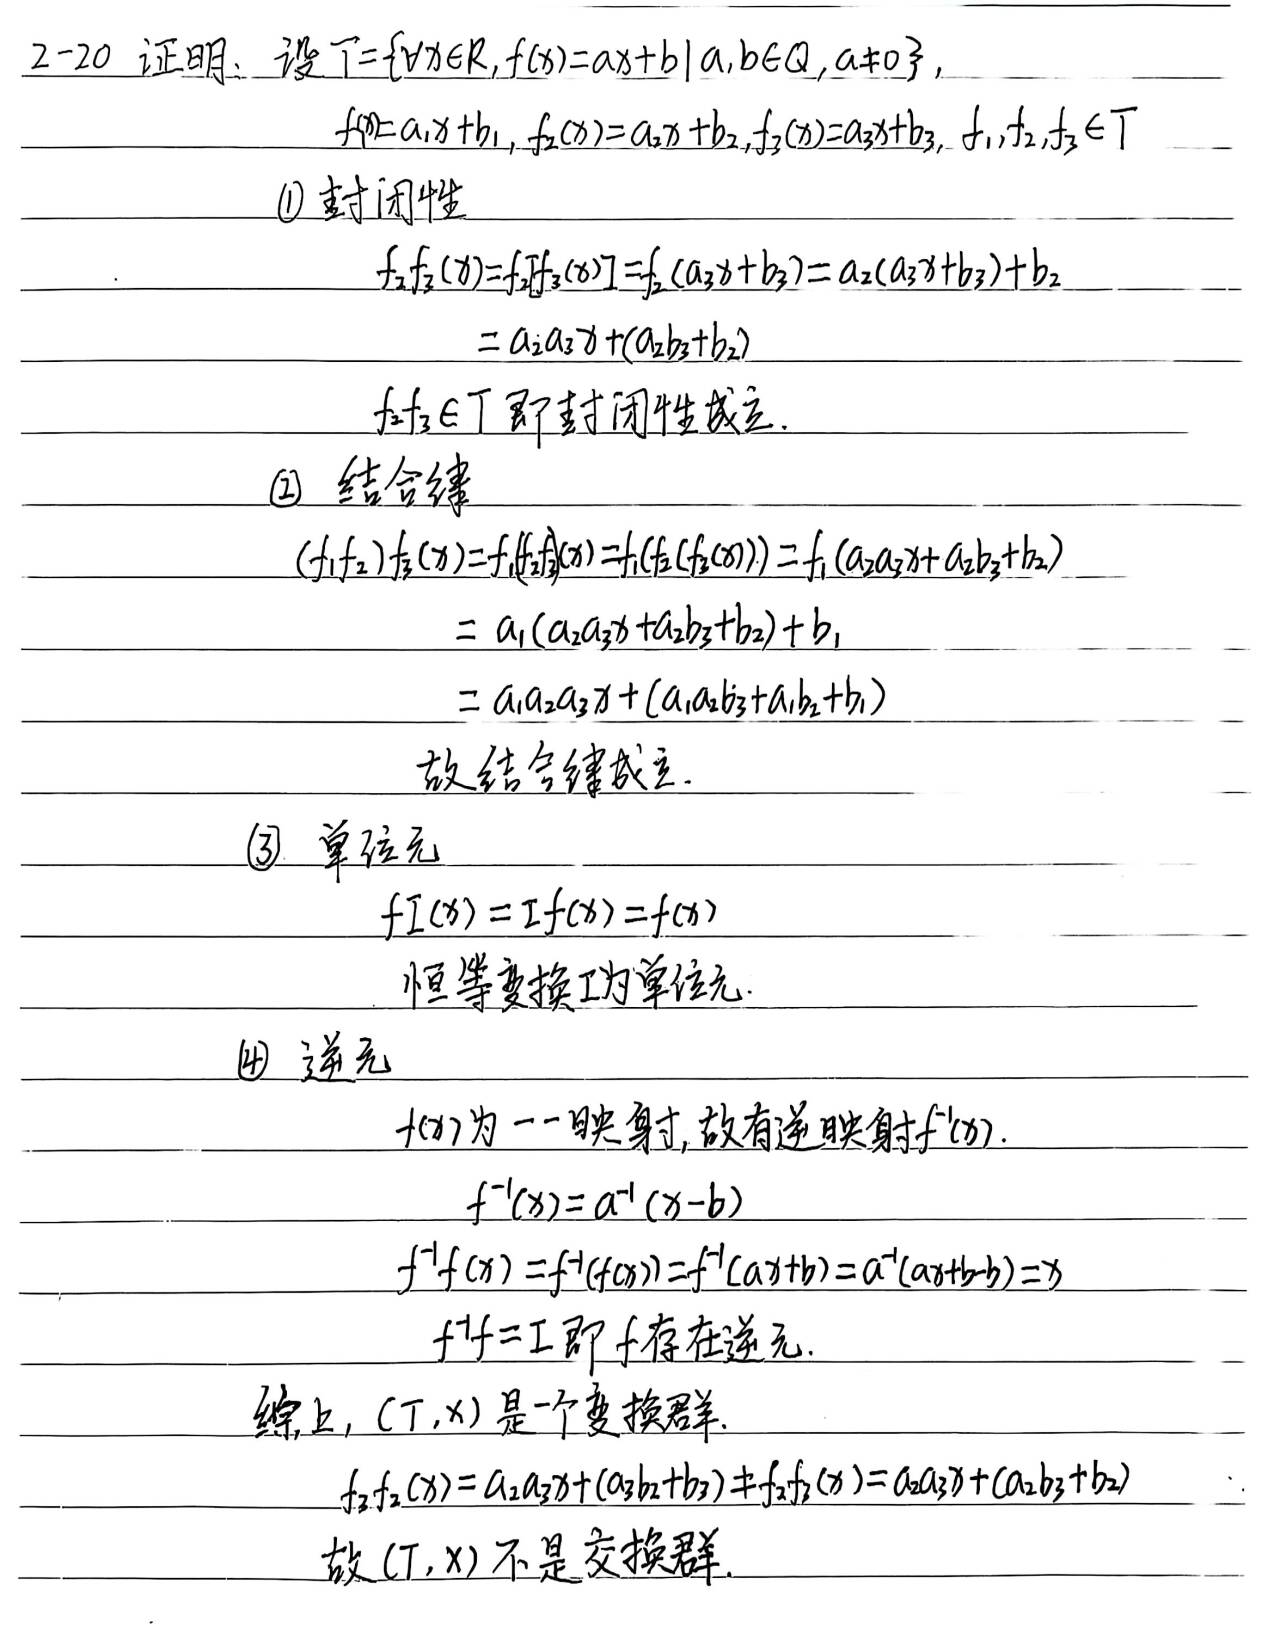 2-20 证明: 设T={∀x∈R, f(x)=ax+b | a,b∈Q, a≠0},
f(x)=a₁x+b₁, f₂(x)=a₂x+b₂, f₃(x)=a₃x+b₃, f₁,f₂,f₃∈T
① 封闭性
f₂f₃(x)=f₂[f₃(x)]=f₂(a₃x+b₃)=a₂(a₃x+b₃)+b₂
=a₂a₃x+(a₂b₃+b₂)
f₂f₃∈T 即封闭性成立.
② 结合律
(f₁f₂)f₃(x)=f₁(f₂f₃)(x)=f₁(f₂(f₃(x)))=f₁(a₂a₃x+a₂b₃+b₂)
=a₁(a₂a₃x+a₂b₃+b₂)+b₁
=a₁a₂a₃x+(a₁a₂b₃+a₁b₂+b₁)
故结合律成立.
③ 单位元
fI(x)=If(x)=f(x)
恒等变换I为单位元.
④ 逆元
f(x)为一一映射,故有逆映射f⁻¹(x).
f⁻¹(x)=a⁻¹(x-b)
f⁻¹f(x)=f⁻¹(f(x))=f⁻¹(ax+b)=a⁻¹(ax+b-b)=x
f⁻¹f=I 即f存在逆元.
综上, (T,×)是一个变换群.
f₃f₂(x)=a₂a₃x+(a₃b₂+b₃)≠f₂f₃(x)=a₂a₃x+(a₂b₃+b₂)
故(T,×)不是交换群.